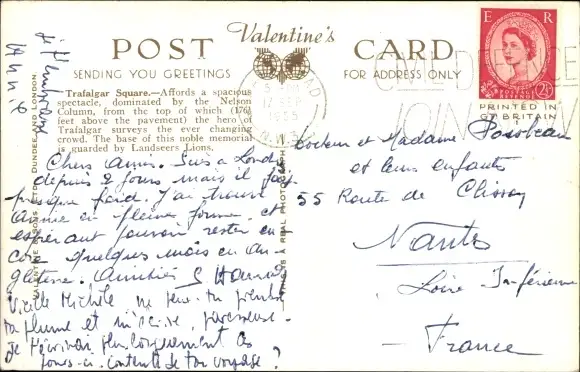 Valentine's
POST CARD
SENDING YOU GREETINGS
FOR ADDRESS ONLY
E R
POSTAGE REVENUE
2½D
PRINTED IN
GT BRITAIN
17 SEP
1955
N.W.3
CIVIL DEFENCE
JOIN NOW
Trafalgar Square.—Affords a spacious
spectacle, dominated by the Nelson
Column, from the top of which (176
feet above the pavement) the hero of
Trafalgar surveys the ever changing
crowd. The base of this noble memorial
is guarded by Landseers Lions.
VALENTINE & SONS LTD. DUNDEE AND LONDON.
THIS IS A REAL PHOTOGRAPH
Chers Amis. Suis à Londres
depuis 2 jours mais il fait
presque froid. J'ai trouvé
Annie en pleine forme et
espérant pouvoir rester en
core quelques mois en An
gleterre. Amitiés S
Vieille Michèle ne peux-tu prendre
ta plume et m'écrire,
Je t'écrirai plus longuement ces
jours-ci. contente de ton voyage ?
Docteur et Madame
et leurs enfants
55 Route de Clisson
Nantes
Loire Inférieure
France